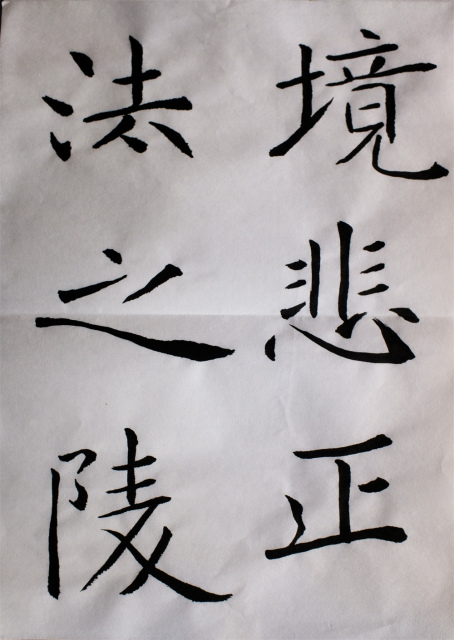 境悲正
法之陵